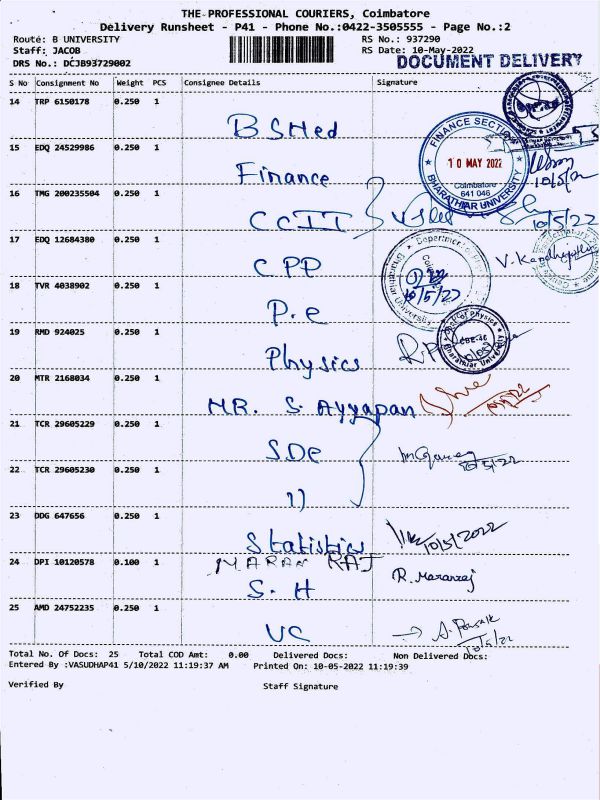 THE PROFESSIONAL COURIERS, Coimbatore
Delivery Runsheet - P41 - Phone No.:0422-3505555 - Page No.:2
Route: B UNIVERSITY RS No.: 937290
Staff: JACOB RS Date: 10-May-2022
DRS No.: DCJB93729002 DOCUMENT DELIVERY
S No Consignment No Weight PCS Consignee Details Signature
14 TRP 6150178 0.250 1
BSMed
15 EDQ 24529986 0.250 1
FINANCE SECTION
10 MAY 2022
Coimbatore
641 046
BHARATHIAR UNIVERSITY
Finance 10/5/22
16 TMG 200235504 0.250 1
CCII 10/5/22
17 EDQ 12684380 0.250 1
CPP
Bharathiar University
10/5/22
18 TVR 4038902 0.250 1
P.e
19 RMD 924025 0.250 1
Physics
Dept of Physics
Bharathiar University
20 MTR 2168034 0.250 1
MR. S. Ayyapan
21 TCR 29605229 0.250 1
SDe 10/5/22
22 TCR 29605230 0.250 1
11
23 DDG 647656 0.250 1
Statistics 10/5/2022
24 DPI 10120578 0.100 1
MARAN RAJ
S. H R. Maranraj
25 AMD 24752235 0.250 1
VC 10/5/22
Total No. Of Docs: 25 Total COD Amt: 0.00 Delivered Docs: Non Delivered Docs:
Entered By :VASUDHAP41 5/10/2022 11:19:37 AM Printed On: 10-05-2022 11:19:39
Verified By Staff Signature